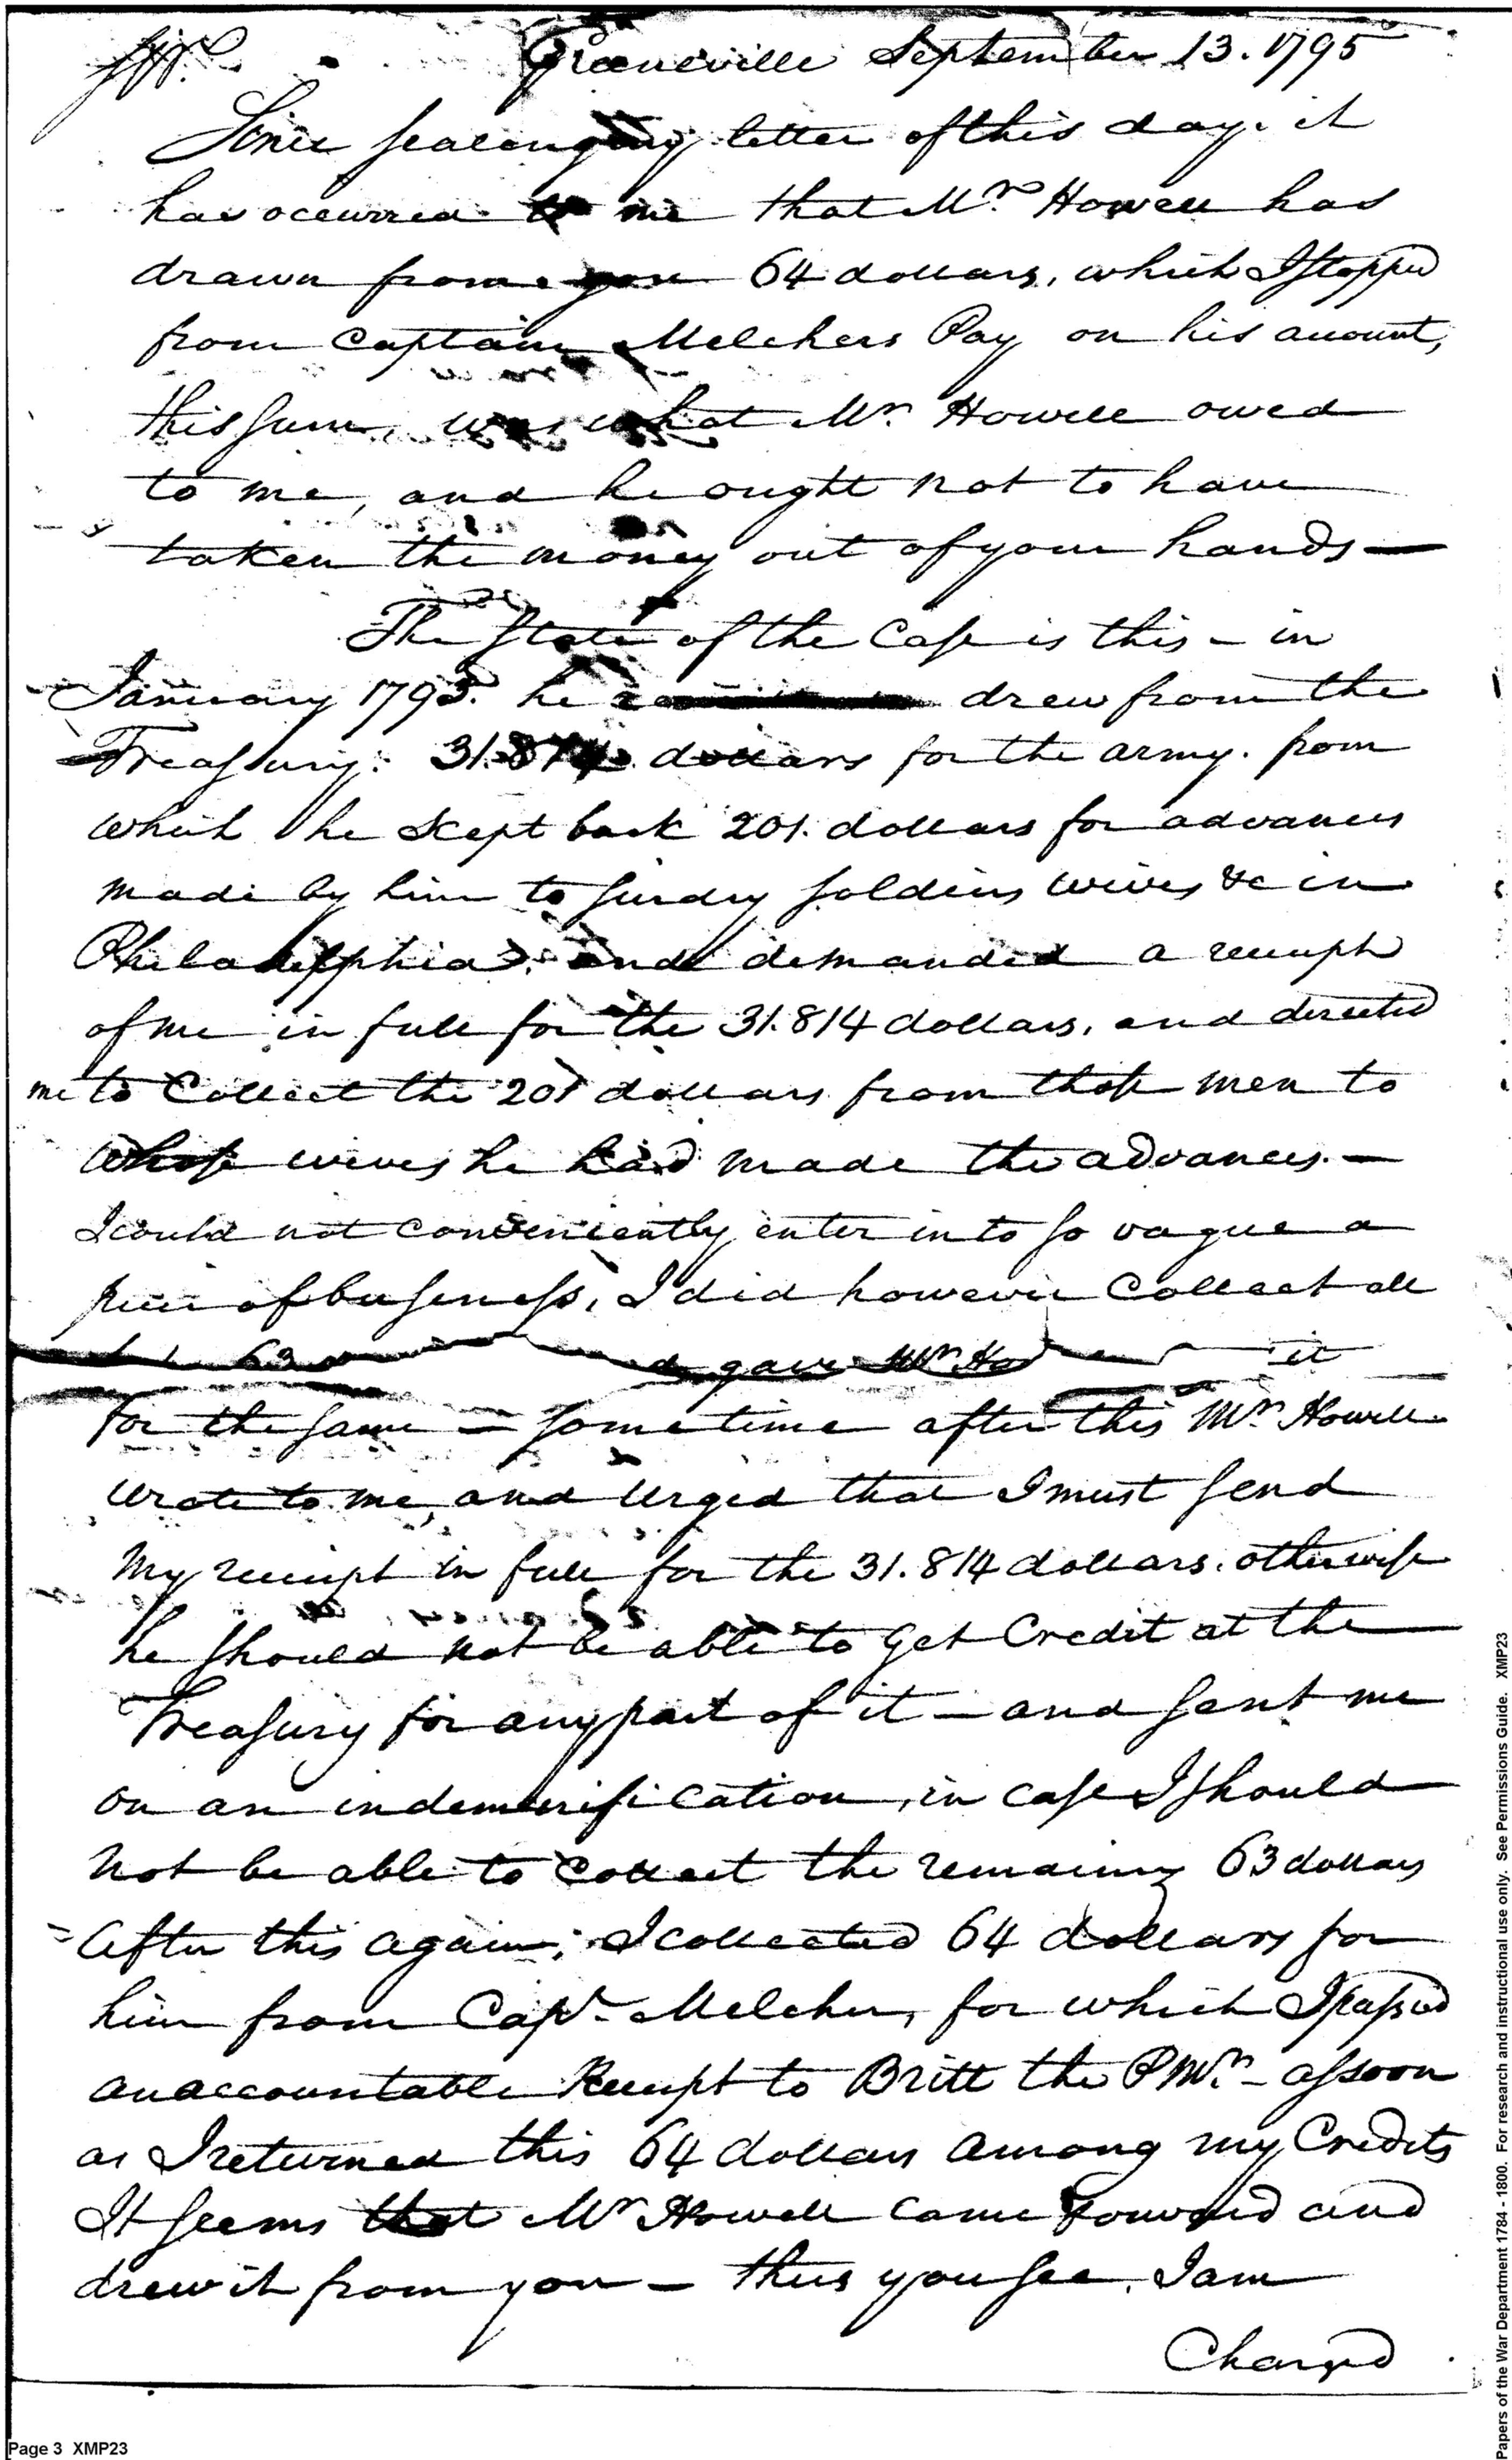 Sir. Greeneville September 13. 1795
Since sealing my letter of this day. it
has occurred to me that Mr. Howell has
drawn from you 64 dollars, which I stopped
from Captain Melchers Pay on his account,
this sum, was what Mr. Howell owed
to me, and he ought not to have
taken the money out of your hands —
The State of the Case is this – in
January 1793. he drew from the
Treasury: 31.814 dollars for the army. from
which he kept back 201. dollars for advances
made by him to sundry soldiers wives &c in
Philadelphia, and demanded a receipt
of me in full for the 31.814 dollars, and directed
me to Collect the 201 dollars from those men to
whose wives he had made the advances. —
I could not conveniently enter into so vague a
piece of business, I did however Collect all
63 gave Mr it
for the same – some time after this Mr. Howell
wrote to me, and urged that I must send
my receipt in full for the 31.814 dollars. otherwise
he should not be able to Get Credit at the
Treasury for any part of it – and sent me
on an indemnification, in case I should
not be able to Collect the remaining 63 dollars
After this again; I collected 64 dollars for
him from Capt. Melcher, for which I passed
an accountable Receipt to Britt the P Mr. – assoon
as I returned this 64 dollars among my Credits
It seems that Mr Howell came forward and
drew it from you – thus you see, I am
Charged
Page 3 XMP23
Papers of the War Department 1784 - 1800. For research and instructional use only. See Permissions Guide. XMP23